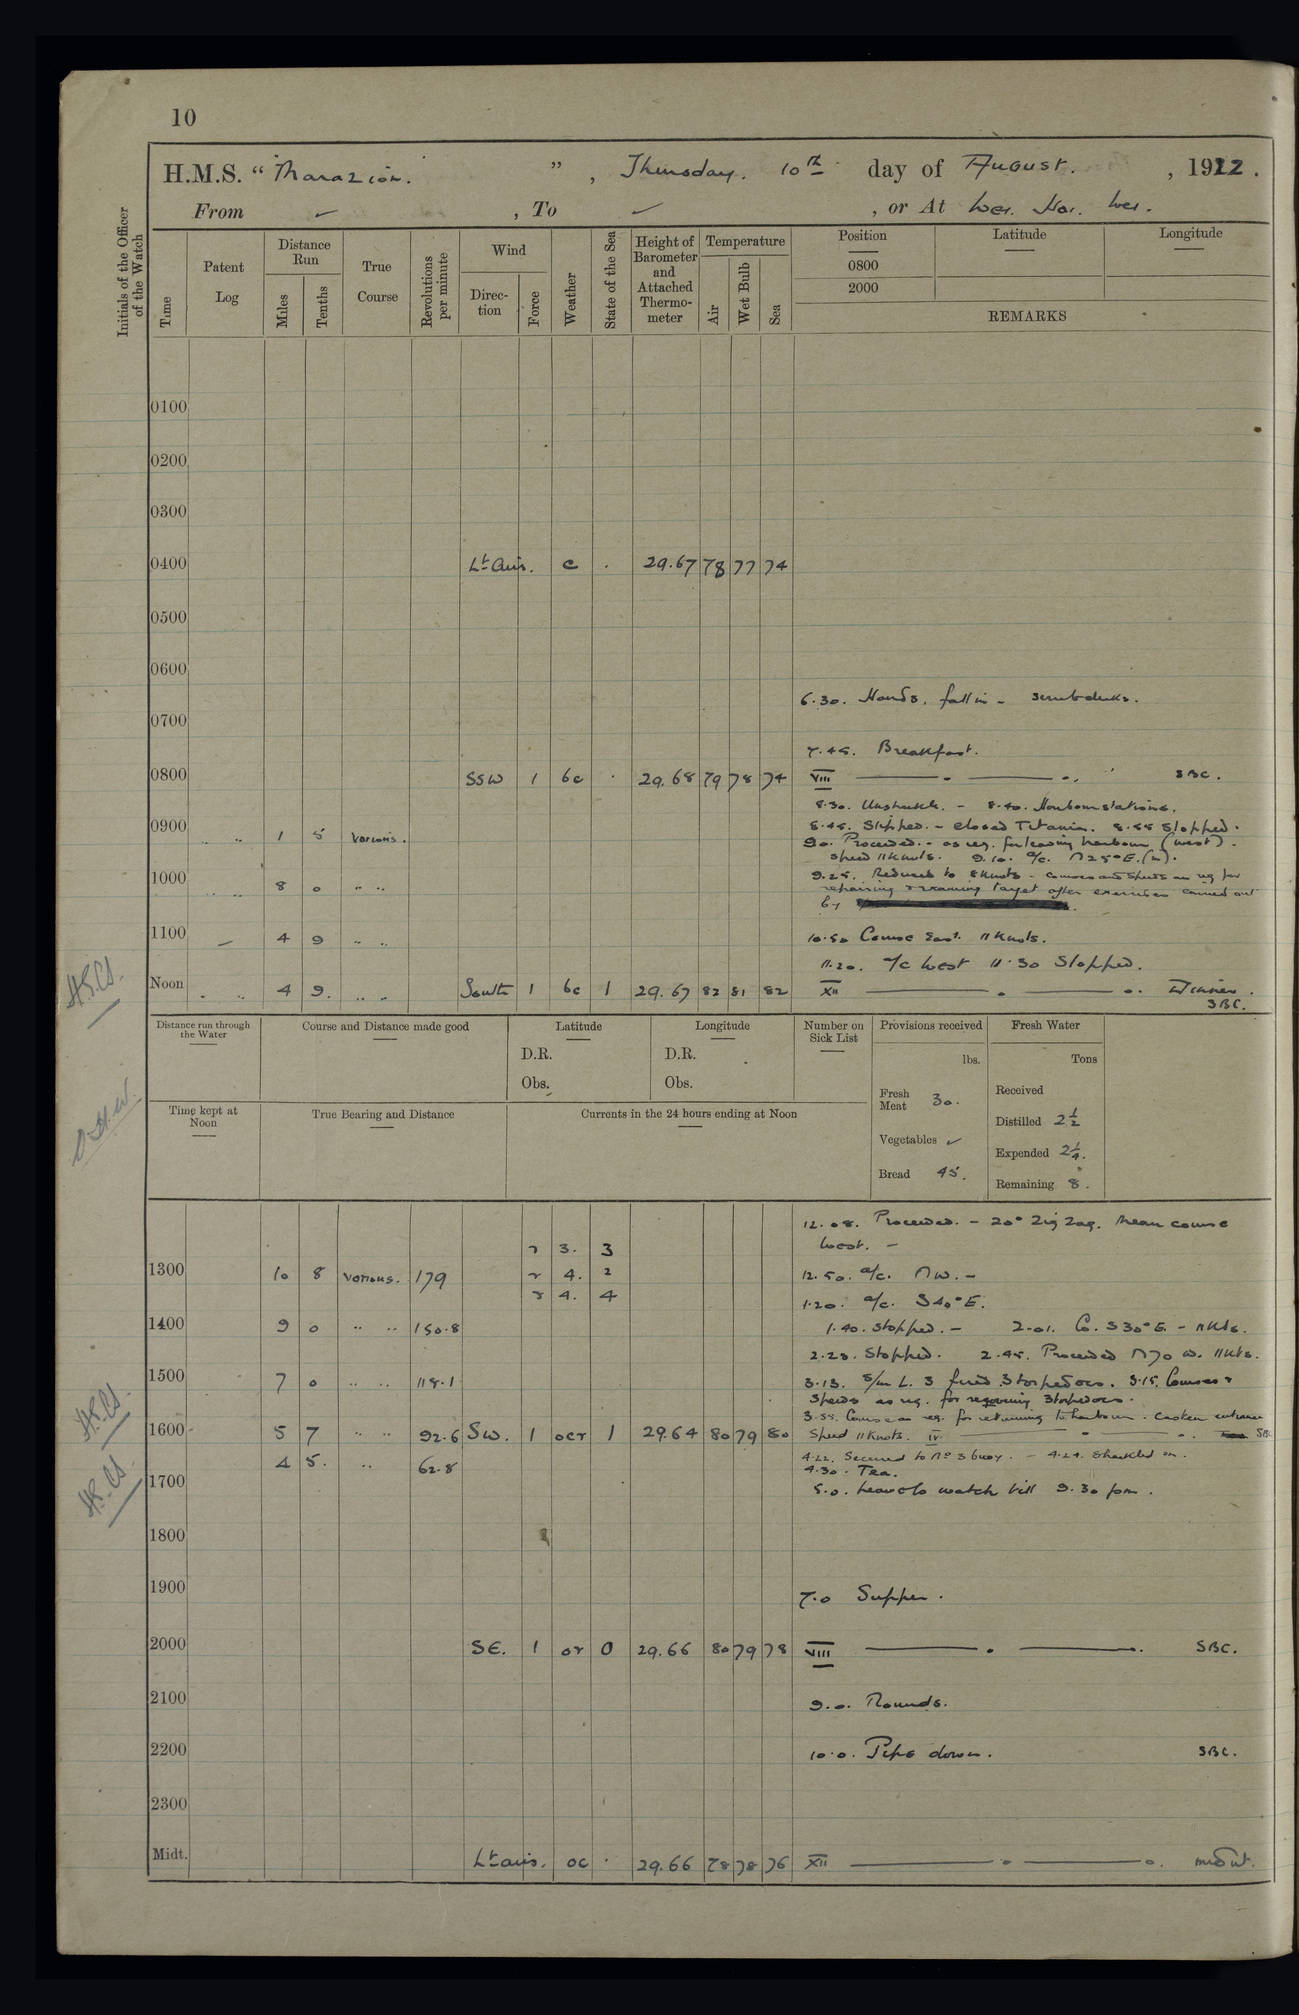 10
H.M.S. "Marazion." , Thursday. 10th day of August. , 1922.
From ✓ , To ✓ , or At Wei. Hai. Wei.
Initials of the Officer of the Watch
Time
Patent Log
Distance Run
Miles
Tenths
True Course
Revolutions per minute
Wind
Direc-tion
Force
Weather
State of the Sea
Height of Barometer and Attached Thermo-meter
Temperature
Air
Wet Bulb
Sea
Position
0800
2000
Latitude
Longitude
REMARKS
0100
0200
0300
0400 Lt Airs. c . 29.67 78 77 74
0500
0600
6.30. Hands. fall in - scrub decks.
0700
7.45. Breakfast.
0800 SSW 1 bc . 29.68 79 78 74 VIII SBC.
8.30. Unshackle. - 8.40. Harbour stations.
0900 1 5 Various. 8.45. Slipped. - closed Titania. 8.55 Stopped.
9.0. Proceeded. - as req. for leaving harbour (west).
speed 11 knots. 9.10. a/c. N25°E.(m).
1000 8 0 " " 9.25. Reduced to 8 knots - courses and speeds as req for
repairing & reaming target after exercises carried out
by
1100 4 9 " " 10.50 Course East. 11 knots.
11.20. a/c West 11.30 Stopped.
Noon 4 9. " " South 1 bc 1 29.67 82 81 82 XII Dinner.
SBC.
Distance run through the Water
Course and Distance made good
Latitude
D.R.
Obs.
Longitude
D.R.
Obs.
Number on Sick List
Provisions received
lbs.
Fresh Meat 30.
Vegetables ✓
Bread 45.
Fresh Water
Tons
Received
Distilled 2½
Expended 2¼.
Remaining 8.
Time kept at Noon
True Bearing and Distance
Currents in the 24 hours ending at Noon
12.08. Proceeded. - 20° Zig Zag. Mean course
West. -
r 3. 3
1300 10 8 Various. 179 r 4. 2 12.50. a/c. NW. -
r 4. 4 1.20. a/c. S40°E.
1400 9 0 " " 150.8 1.40. Stopped. - 2.01. Co. S30°E. - 11 Kts.
2.23. Stopped. 2.45. Proceeded N70 W. 11 Kts.
1500 7 0 " " 118.1 3.13. S/m L. 3 fired 3 torpedoes. 3.15. Courses &
Speeds as req. for recovering 3 torpedoes.
3.55. Course as req. for returning to harbour. Eastern entrance
1600 5 7 " " 92.6 SW. 1 ocr 1 29.64 80 79 80 Speed 11 knots. IV SBC
4 5. " 62.8 4.22. Secured to No 3 buoy. - 4.24. Shackled on.
4.30. Tea.
1700 5.0. Leave to watch till 9.30 pm.
1800
1900 7.0 Supper.
2000 SE. 1 or 0 29.66 80 79 78 VIII SBC.
2100 9.0. Rounds.
2200 10.0. Pipe down. SBC.
2300
Midt. Lt airs. oc . 29.66 78 78 76 XII